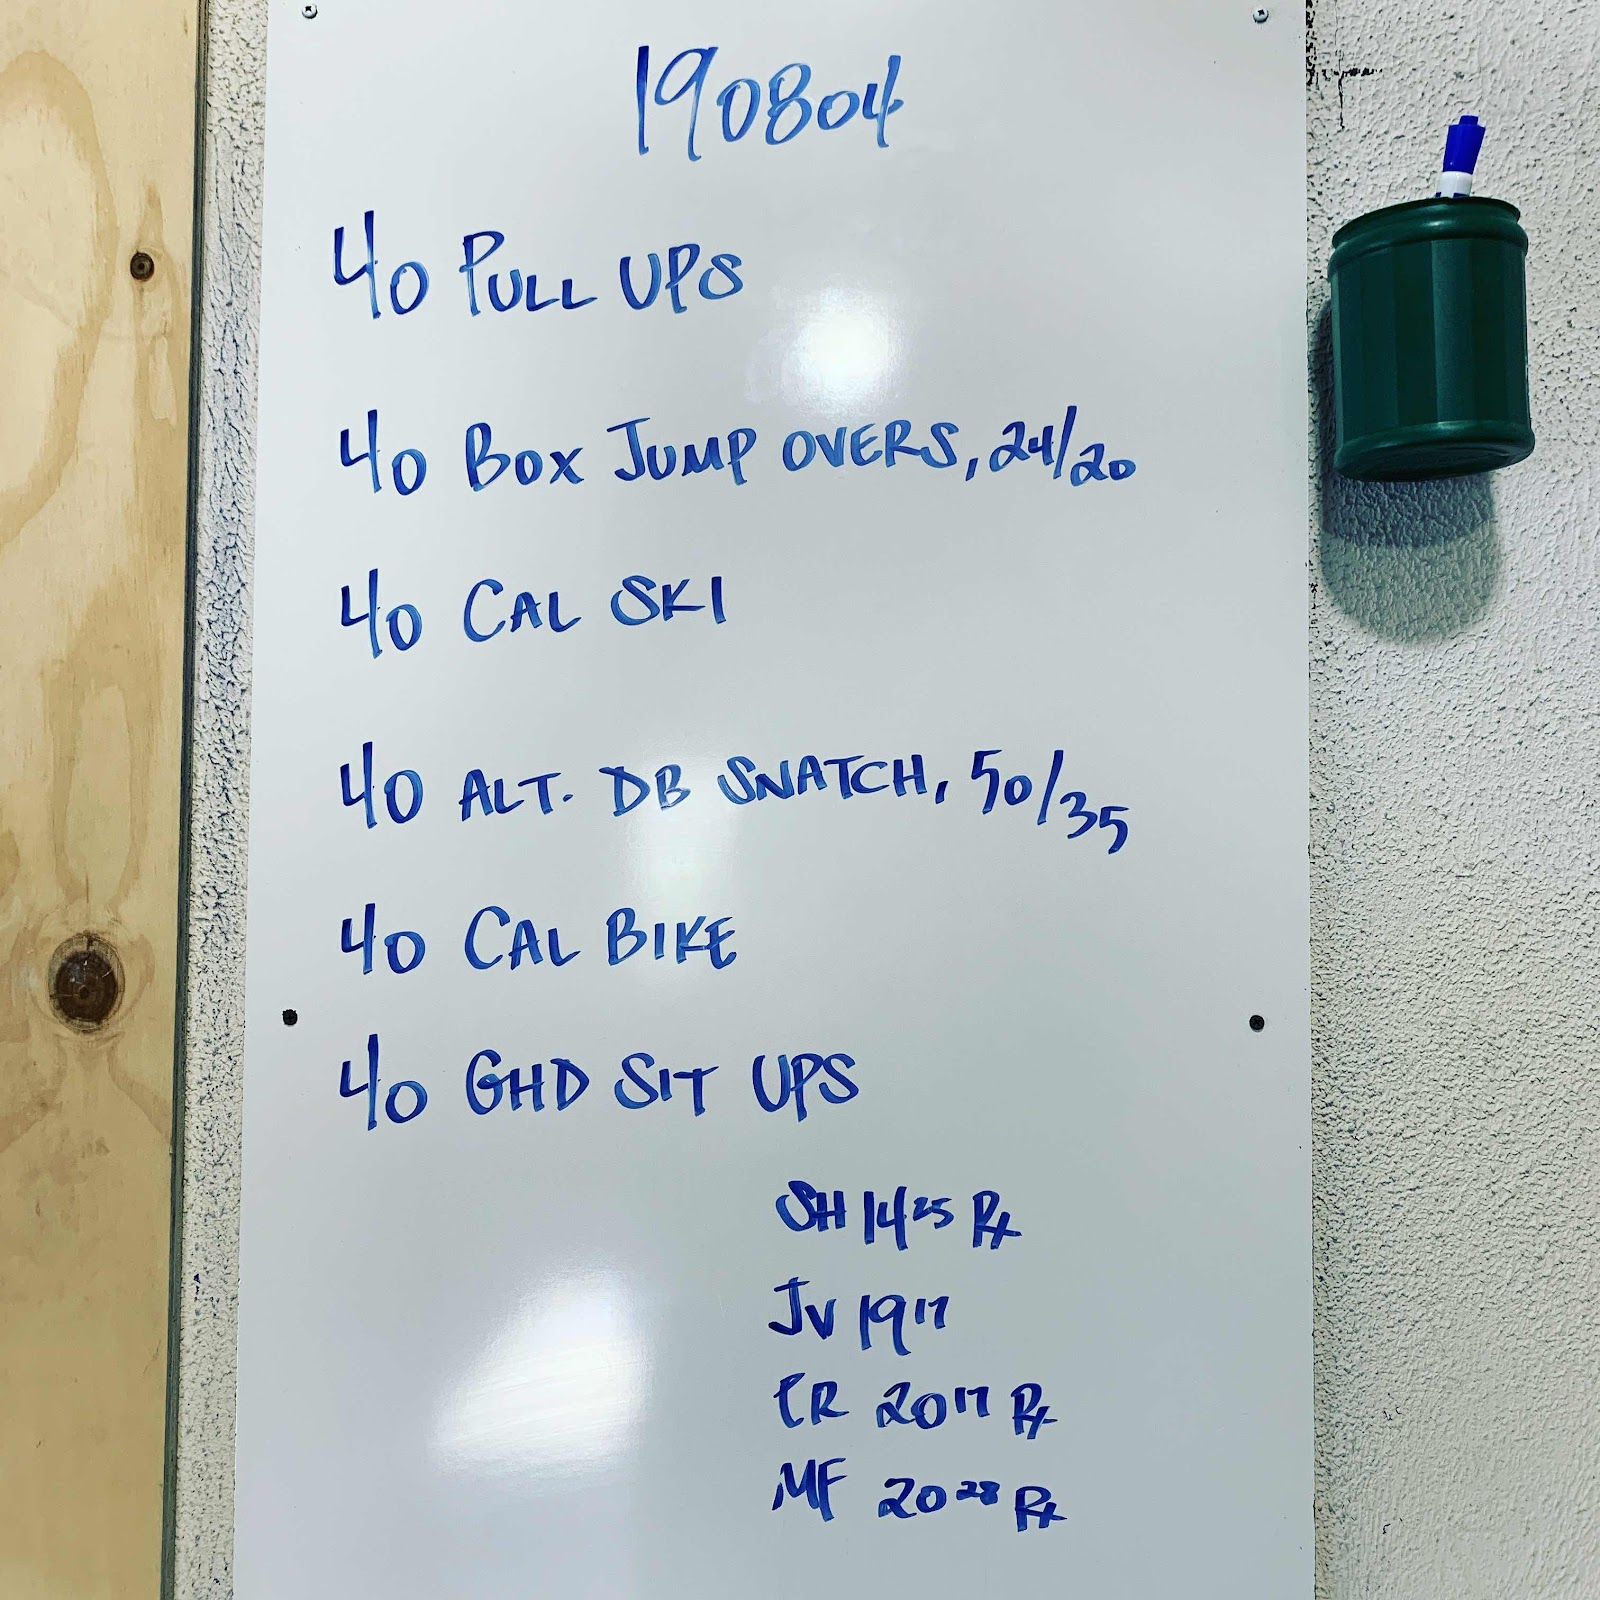 190804
40 PULL UPS
40 BOX JUMP OVERS, 24/20
40 CAL SKI
40 ALT. DB SNATCH, 50/35
40 CAL BIKE
40 GHD SIT UPS
SH 14 25 Rx
JV 19 17
CR 20 17 Rx
MF 20 28 Rx